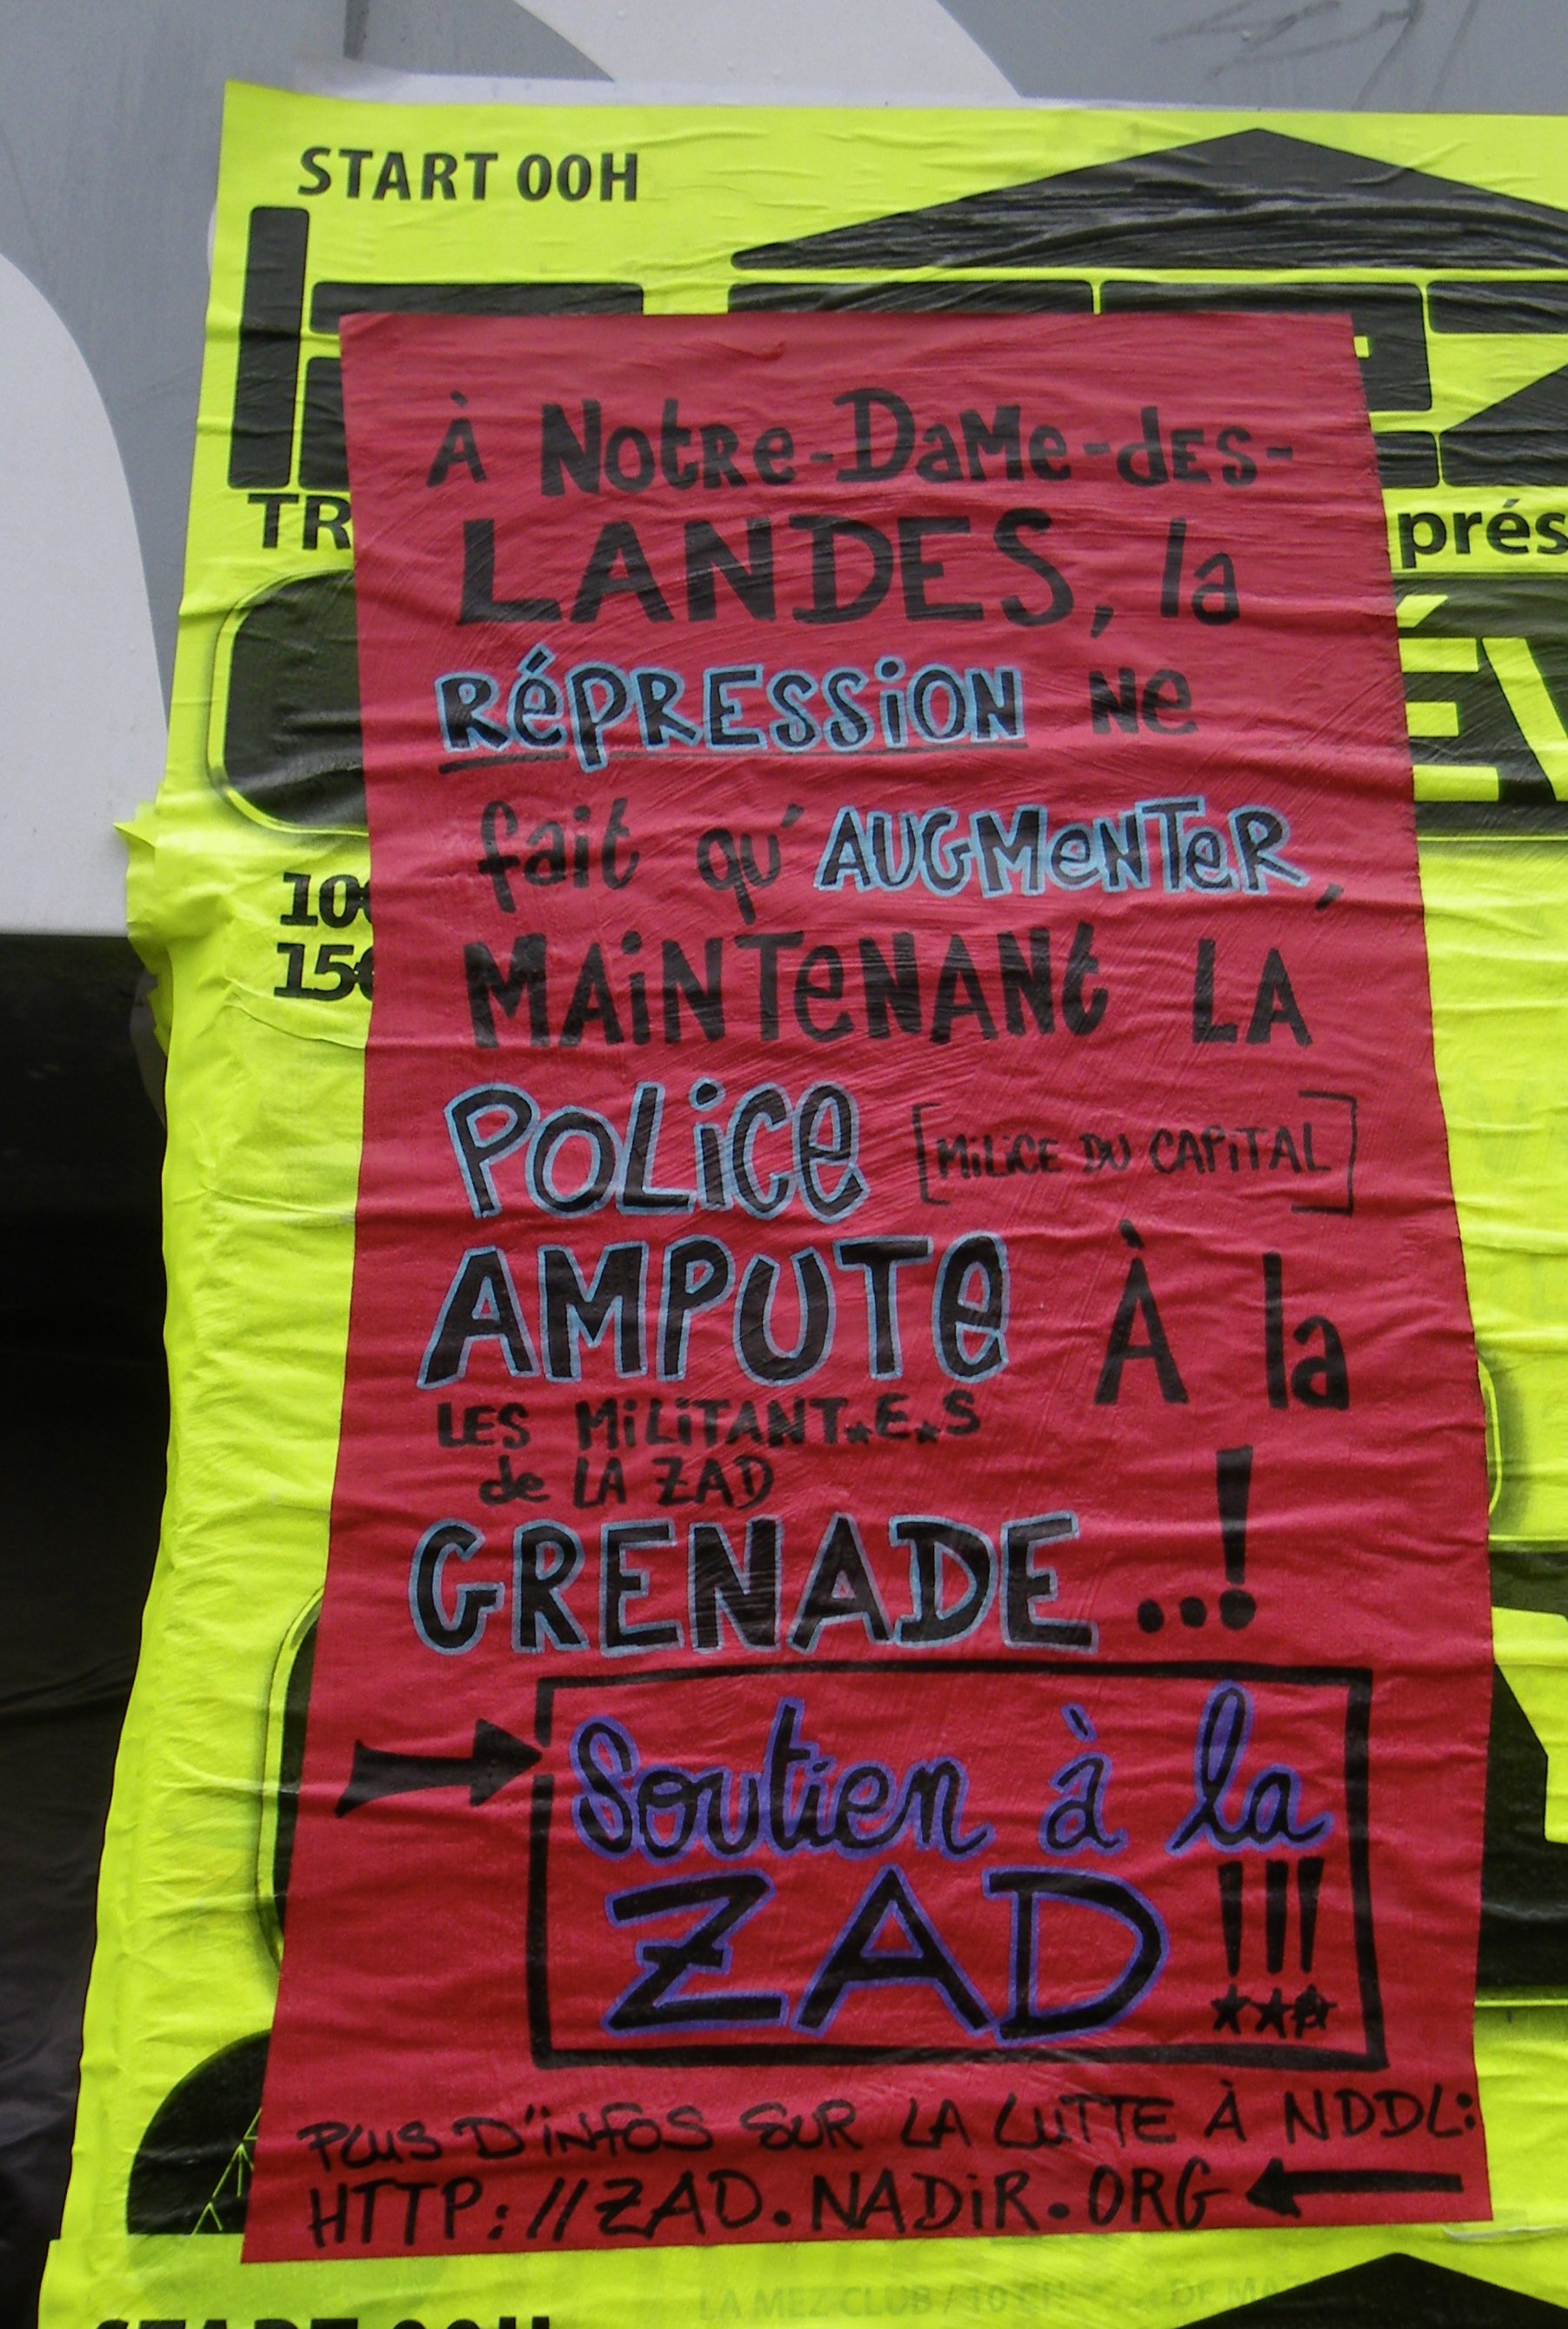 START 00H
TR
prés
ÉV
10€
15€
À NOtRe-DaMe-dES-
LANDES, la
RéPRESSiON Ne
fait qu'AUGMeNTeR,
MAiNTeNANt LA
POLiCe [MiLiCE DU CAPiTAL]
AMPUTe À la
LES MiLiTANT*E*S
de LA ZAD
GRENADE ..!
Soutien à la
ZAD !!!
PLUS D'iNfOS SUR LA LUTTE À NDDL:
HTTP://ZAD.NADiR.ORG
LA MEZ CLUB / 10
START 00H